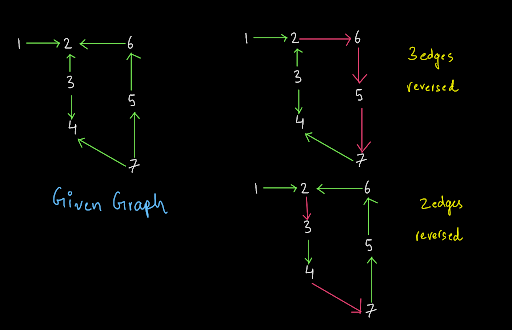 1 2 6
3
5
4
7
Given Graph
1 2 6
3
5
4
7
3edges
reversed
1 2 6
3
5
4
7
2edges
reversed